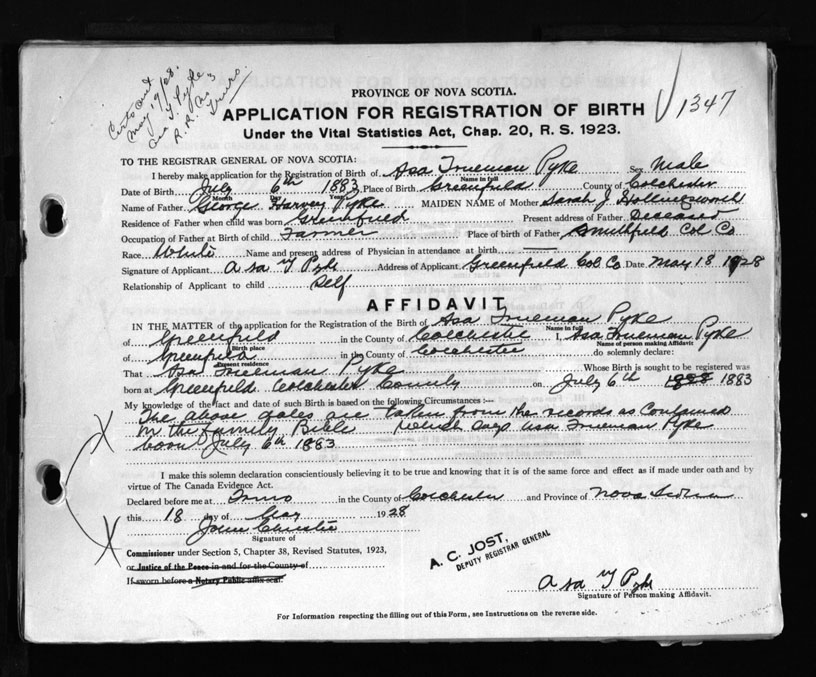 Certs out
May 19/28.
Asa T Pyke
R.R. No 3
Truro.
1347
PROVINCE OF NOVA SCOTIA.
APPLICATION FOR REGISTRATION OF BIRTH
Under the Vital Statistics Act, Chap. 20, R. S. 1923.
TO THE REGISTRAR GENERAL OF NOVA SCOTIA:
I hereby make application for the Registration of Birth of Asa Trueman Pyke Sex Male
Name in full
Date of Birth July 6th 1883 Place of Birth Greenfield County of Colchester
Month Day Year
Name of Father George Harvey Pyke MAIDEN NAME of Mother Sarah J Hollingsworth
Residence of Father when child was born Greenfield Present address of Father Deceased
Occupation of Father at Birth of child Farmer Place of birth of Father Smithfield Col Co
Race White Name and present address of Physician in attendance at birth
Signature of Applicant Asa T Pyke Address of Applicant Greenfield Col Co Date May 18 1928
Relationship of Applicant to child Self
AFFIDAVIT
IN THE MATTER of the application for the Registration of the Birth of Asa Trueman Pyke
Name in full
of Greenfield in the County of Colchester I, Asa Trueman Pyke
Birth place Name of person making Affidavit
of Greenfield in the County of Colchester do solemnly declare:
Present residence
That Asa Trueman Pyke Whose Birth is sought to be registered was
born at Greenfield Colchester County on July 6th 1888 1883
My knowledge of the fact and date of such Birth is based on the following Circumstances :—
The above dates are taken from the records as Contained
in the family Bible which says Asa Trueman Pyke
born July 6th 1883
I make this solemn declaration conscientiously believing it to be true and knowing that it is of the same force and effect as if made under oath and by
virtue of The Canada Evidence Act.
Declared before me at Truro in the County of Colchester and Province of Nova Scotia
this 18 day of May 1928
John Christie
Signature of
Commissioner under Section 5, Chapter 38, Revised Statutes, 1923,
or Justice of the Peace in and for the County of
If sworn before a Notary Public affix seal.
A. C. JOST,
DEPUTY REGISTRAR GENERAL
Asa T Pyke
Signature of Person making Affidavit.
For Information respecting the filling out of this Form, see Instructions on the reverse side.